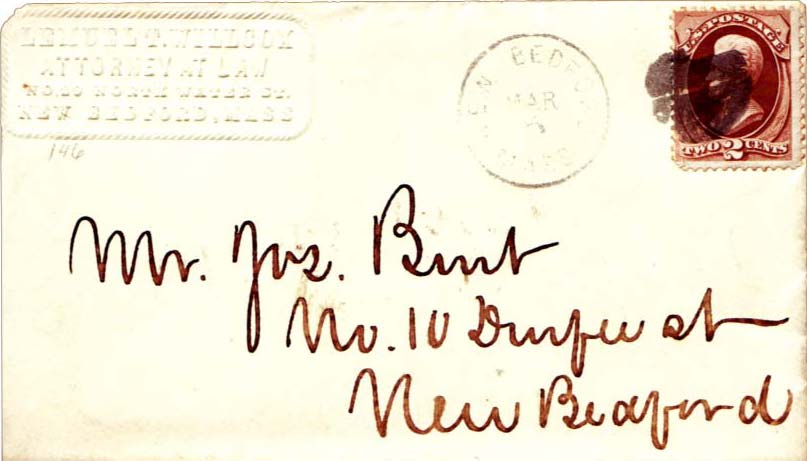 LEMUEL T. WILLCOX
ATTORNEY AT LAW
NORTH WATER ST.
NEW BEDFORD, MASS
146
NEW BEDFORD
MAR
MASS
U.S. POSTAGE
TWO 2 CENTS
Mr. Jos. Bent
No. 10 Durfee st
New Bedford